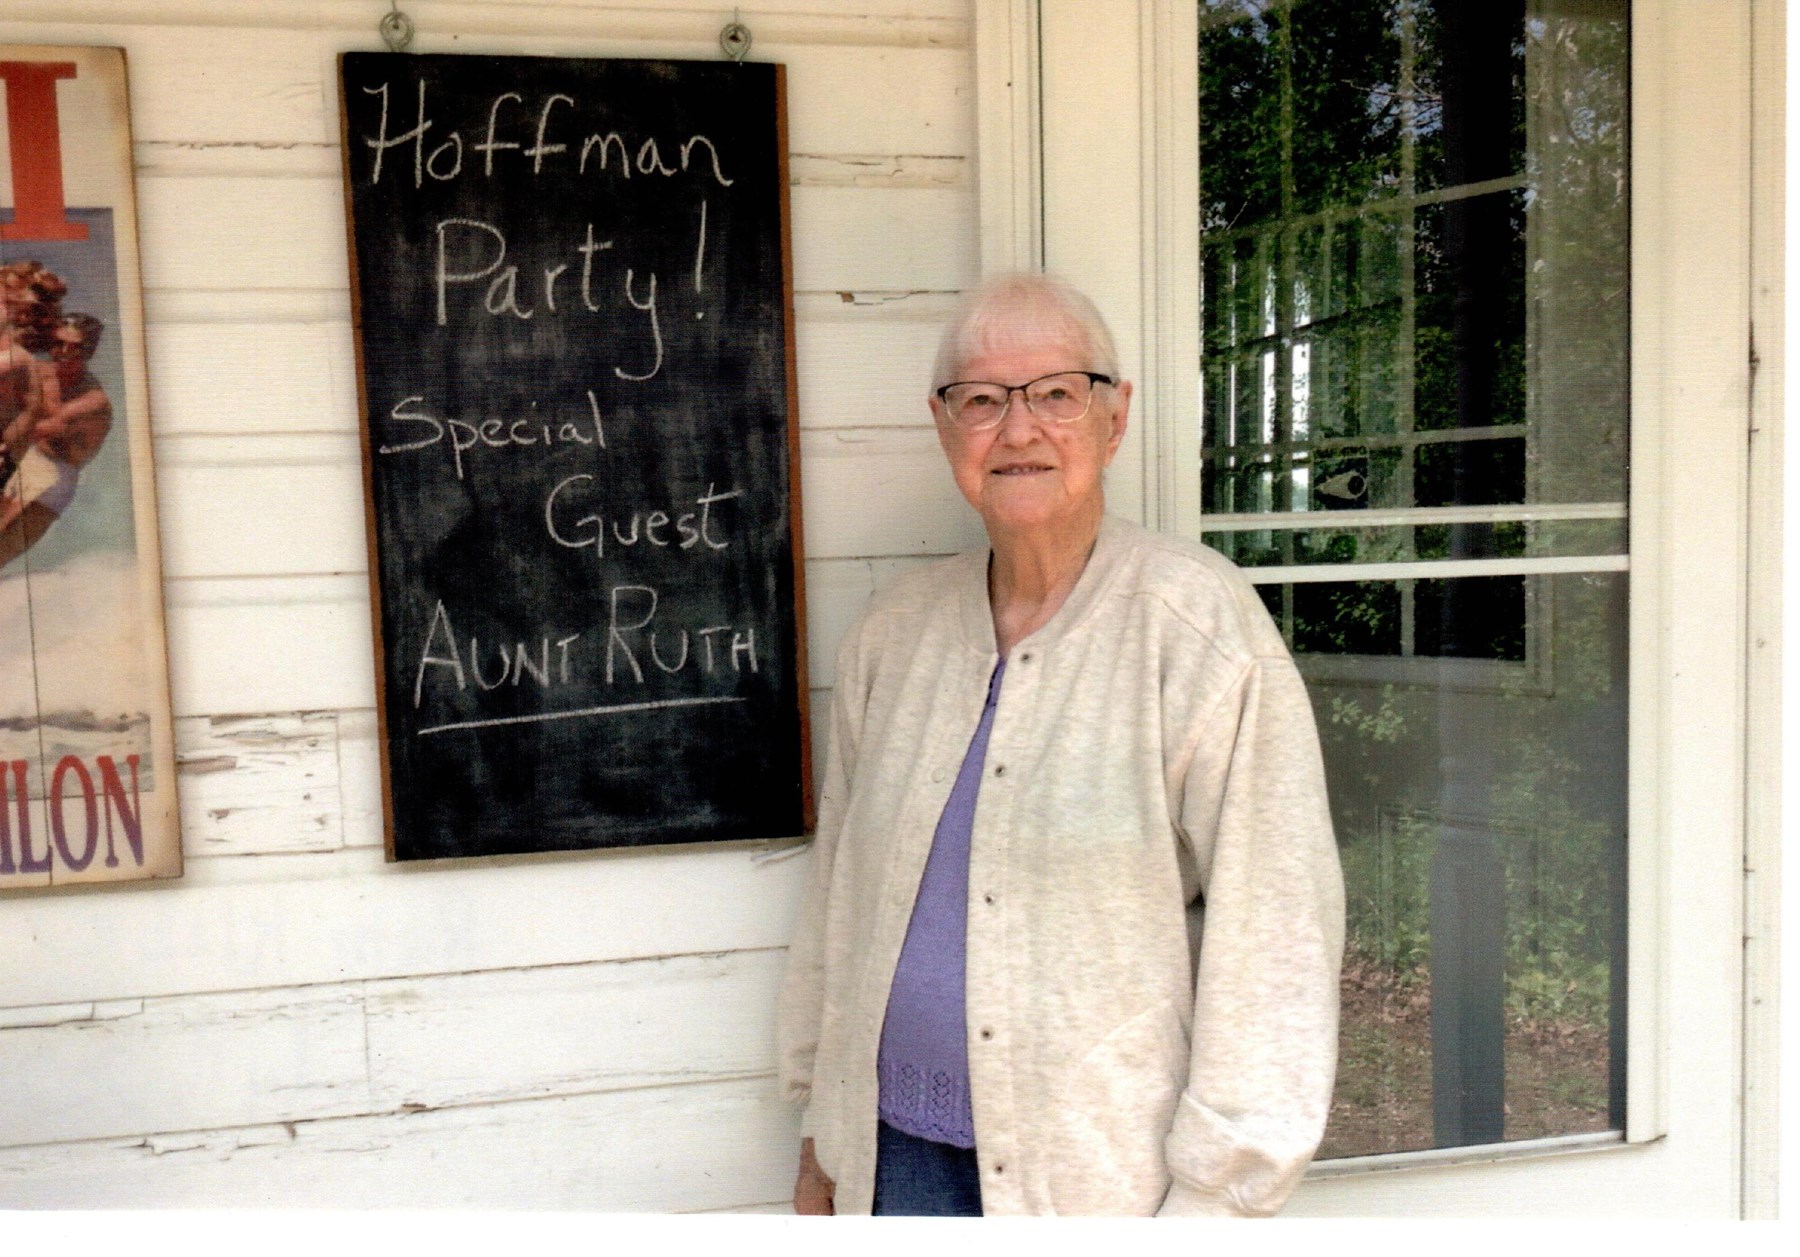 Hoffman
Party!
Special
Guest
AUNT RUTH
I
ILON